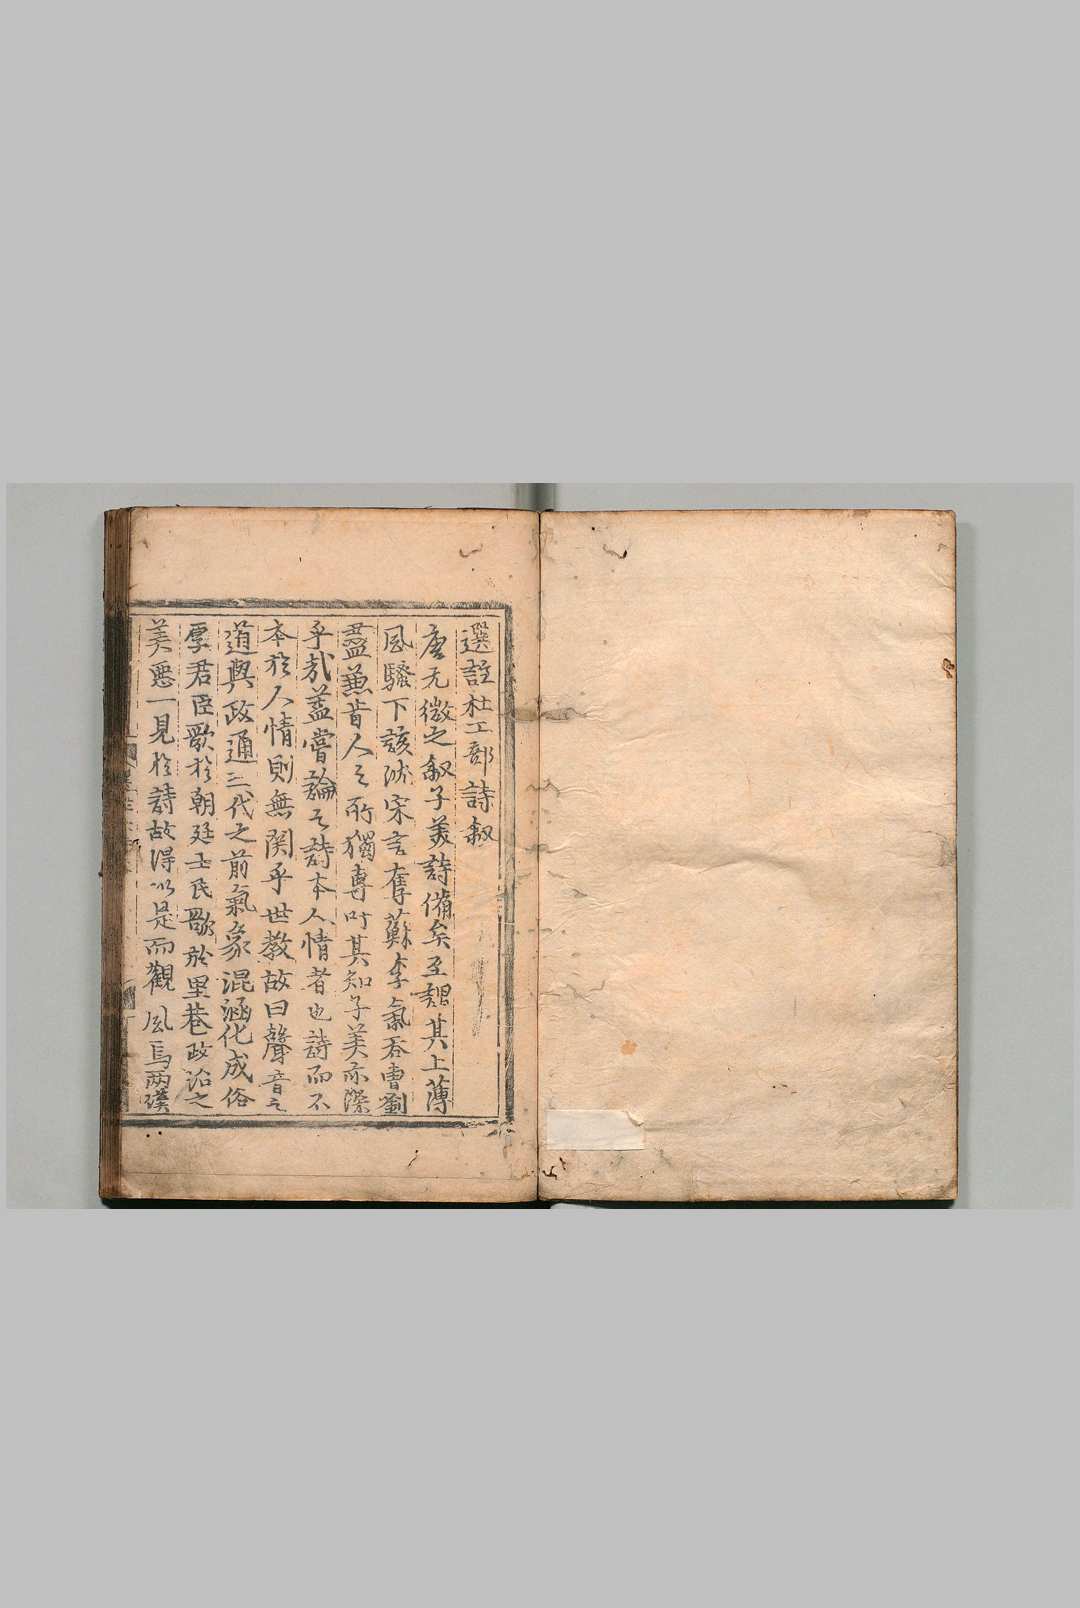 選註杜工部詩叙
唐元微之叙子美詩備矣至謂其上薄
風騷下該沈宋言奪蘇李氣吞曹劉
盡兼昔人之所獨專吁其知子美亦深
乎哉蓋嘗論之詩本人情者也詩而不
本於人情則無関乎世教故曰聲音之
道與政通三代之前氣象混涵化成俗
厚君臣歌於朝廷士民歌於里巷政治之
美惡一見於詩故得以是而觀風焉两漢